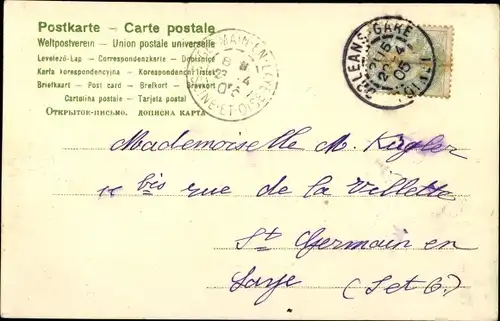 Postkarte - Carte postale
Weltpostverein - Union postale universelle
Levelező-Lap - Correspondenzkarte - Dopisnice
Karta korespondencyjna - Korespondenční lístek
Briefkaart - Post card - Brefkort - Brevkort
Cartolina postale - Tarjeta postal
ОТКРЫТОЕ-ПИСЬМО. ДОПИСНА КАРТА
ST GERMAIN-EN-LAYE
SEINE-ET-OISE
ORLEANS-GARE
15
2 4
05
LOIRET
Mademoiselle M. Kügler
bis rue de la Villette
St Germain en
Laye (S et O.)